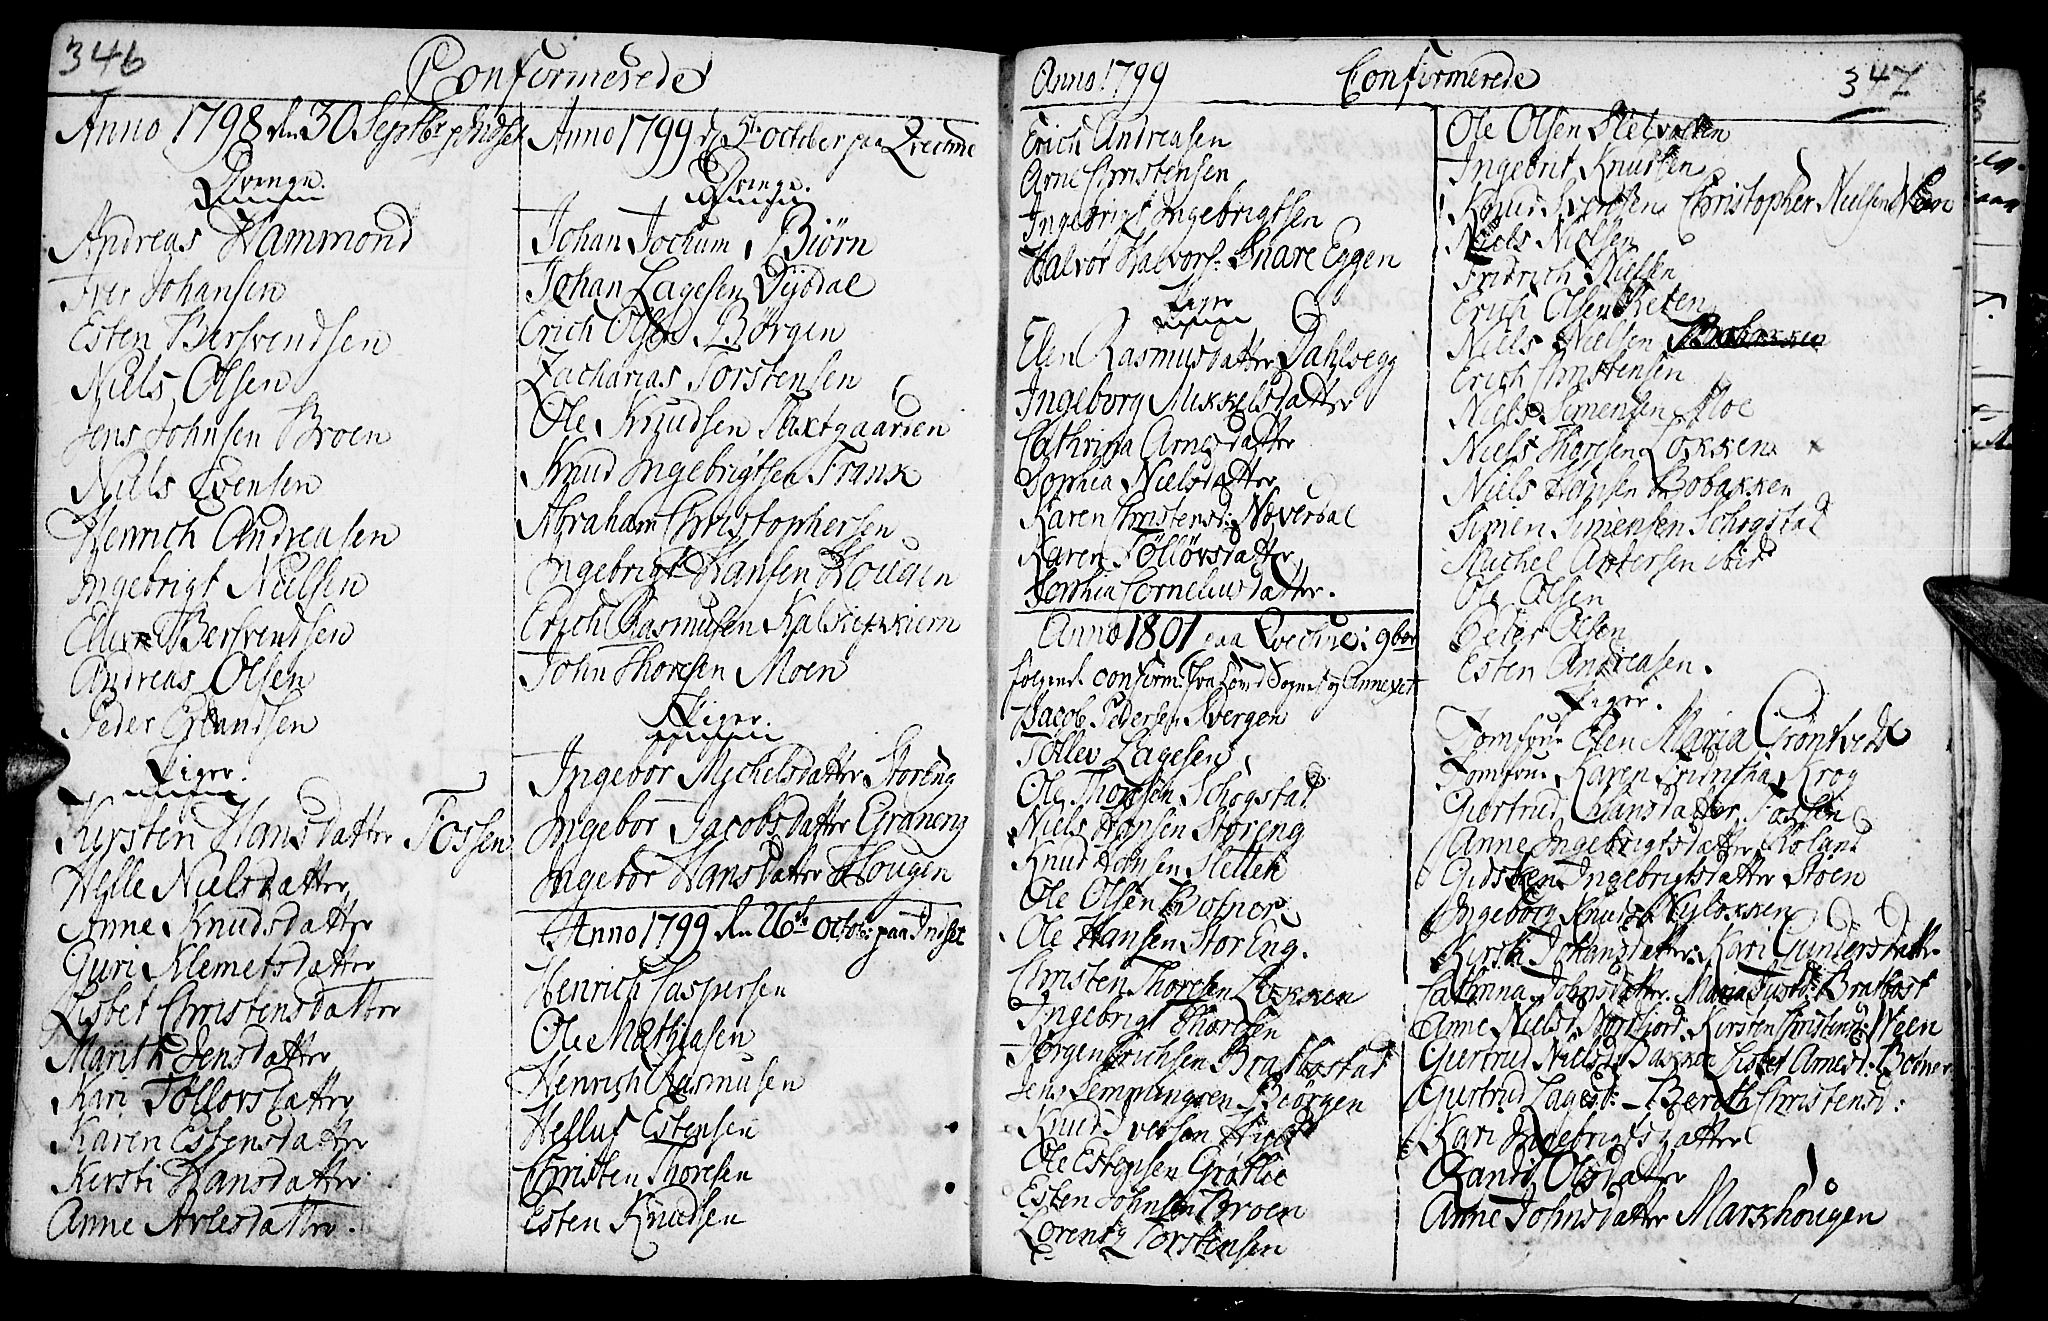 346
Confirmerede
Anno 1798 den 30 Septbr paa Indset
Drenge.
Andreas Hammond
Iver Johansen
Esten Bersvendsen
Niels Olsen
Jens Johnsen Broen
Niels Svensen
Henrich Andreasen
Ingebrigt Nielsen
Bersvendsen
Andreas Olsen
Peder Erlandsen
Piger.
Kirsten Hansdatter Fossen
Helle Nielsdatter
Anne Knudsdatter
Guri Klemetsdatter
Lisbet Christensdatter
Marith Jensdatter
Kari Töllovsdatter
Karen Estensdatter
Kersti Hansdatter
Anne Arnesdatter.
Anno 1799 d 5te october paa Qvecune
Drenge.
Johan Jochum Biörn
Johan Lagesen Dÿbdal
Erich Olsen Börgen
Zacharias Torstensen
Ole Knudsen Taxtgaarden
Knud Ingebrigtsen Frank
Abraham Christophersen
Ingebrigt Hansen Hougen
Erich Rasmusen
John Thoresen Moen
Piger.
Ingebor Michelsdatter Storeng
Ingebor Jacobsdatter Graneng
Ingebor Hansdatter Hougen
Anno 1799 den 26de octob: paa Indset
Henrich Caspersen
Ole Mathiasen
Henrich Rasmusen
Helluf Estensen
Christen Thoresen
Esten Knudsen
Anno 1799
Confirmerede
347
Erich Andreasen
Arne Christensen
Ingebrigt Ingebrigtsen
Halvor Halvors: Snare Eggen
Piger
Elen Rasmusdatter Dahlsegg
Ingeborg Mikkelsdatter
Cathrina Arnesdatter
Sophia Nielsdatter
Karen Christensd: Næverdal
Karen Töllövsdatter
Sophia Corneliusdatter.
Anno 1801 paa Qvecune i 9br
følgende confirm: fra Hoved Sognet og Annexet
Jacob Pedersen Svergen
Tollev Lagesen
Ole Thoresen Schogstad
Niels Hansen Storeng
Knud Hansen Sletten
Ole Olsen Botner
Ole Hansen StorEng.
Christen Thoresen Løkken
Ingebrigt Thoresen
Jørgen Erichsen Bratbostad
Jens Lemmingven Biörgen
Knud Iversen
Ole Estensen Grötlie
Esten Johnsen Broen
Lorentz Torstensen
Ole Olsen Sletvolden
Ingebrit Knutsen
Knud Svensen Christopher Nielsen Ween
Niels Nielsen
Fridrich Nielsen
Erich Olsen Reten
Niels Nielsen Bobakken
Erich Christensen
Niels Simensen Moe
Niels Thoresen Løkken
Niels Hansen Bobakken
Simen Simensen Schogstad
Michel Andersen
Ole Olsen
Peder Olsen
Esten Andreasen.
Piger.
Jomfrue Elen Maria Gröntvedt
Jomfrue Karen Krog
Giertrud Hansdatter Fossen
Anne Ingebrigtsdatter
Gidsken Ingebrigtsdatter Stöen
Ingeborg Knudsd. Nyløkken
Kirsti Johansdatter. Kari Gundersdatter
Cathrina Johnsdatter. Maria Bratbost
Anne Nielsd. Nordfiord. Kirsten Christensd: Ween
Giertrud Nielsd: Bakke Lisbet Arnesd: Botner
Giertrud Lagesd: - Berith Christensd:
Kari Ingebrigtsdatter
Randi Olsdatter
Anne Johnsdatter Markhougen